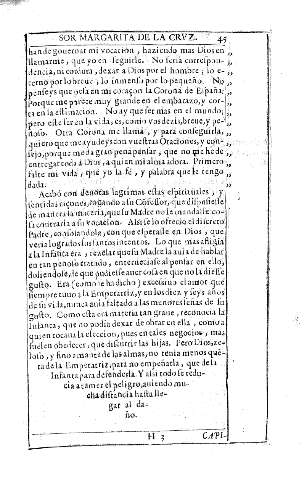 SOR MARGARITA DE LA CRVZ. 45
han de gouernar mi vocacion, haziendo mas Dios en
llamarme, que yo en seguirle. No será correspon-
dencia, ni cordura, dexar a Dios por el hombre; lo e-
terno por lo breue; lo inmenso por lo pequeño. No
penseys que pesa en mi coraçon la Corona de España;
Porque me parece muy grande en el embarazo, y cor-
ta en la estimacion. No ay que fer mas en el mundo;
pero esse ser en la vida, es, como vos dezis, breue, y pe-
noso. Otra Corona me llama, y para conseguirla,
quiero que me ayudeys con vuestras Oraciones, y con-
sejo, porque me da gran pena pensar, que no que he de
entregar toda a Dios, a quien mi alma adora. Primero
falte mi vida, que yo la fé, y palabra que le tengo
dada.
Acabó con deuotas lagrimas estas espirituales, y
sentidas razones, rogando a su Confessor, que dispusiesse
de manera la materia, que su Madre no la mandasse co-
sa contraria a su vocacion. Assi se lo ofrecio el discreto
Padre, consolandola, con que esperasse en Dios, que
veria logrados sus santos intentos. Lo que mas afligia
a la Infanta era, rezelar que su Madre la auia de hablar
en tan penoso tratado, enterneciase al pensar en ello,
doliendole, se que pudiesse auer cosa en que no la diesse
gusto. Era (como se ha dicho) excessiuo el amor que
siempre tuuo a la Emperatriz, y en los diez y seys años
de su vida, nunca auia faltado a las menores señas de su
gusto. Como esta era materia tan graue, reconocia la
Infanta, que no podia dexar de obrar en ella, como a
quien tocaua la eleccion, pues en tales negocios, mas
suelen obedecer, que discurrir las hijas. Pero Dios, ze-
loso, y fino amante de las almas, no tenia menos que-
ta de la Emperatriz, para no empeñarla, que de la
Infanta para defenderla. Y assi todo se redu-
cia a temer el peligro, auiendo mu-
cha distancia hasta lle-
gar al da-
ño.
H 3 CAPI-